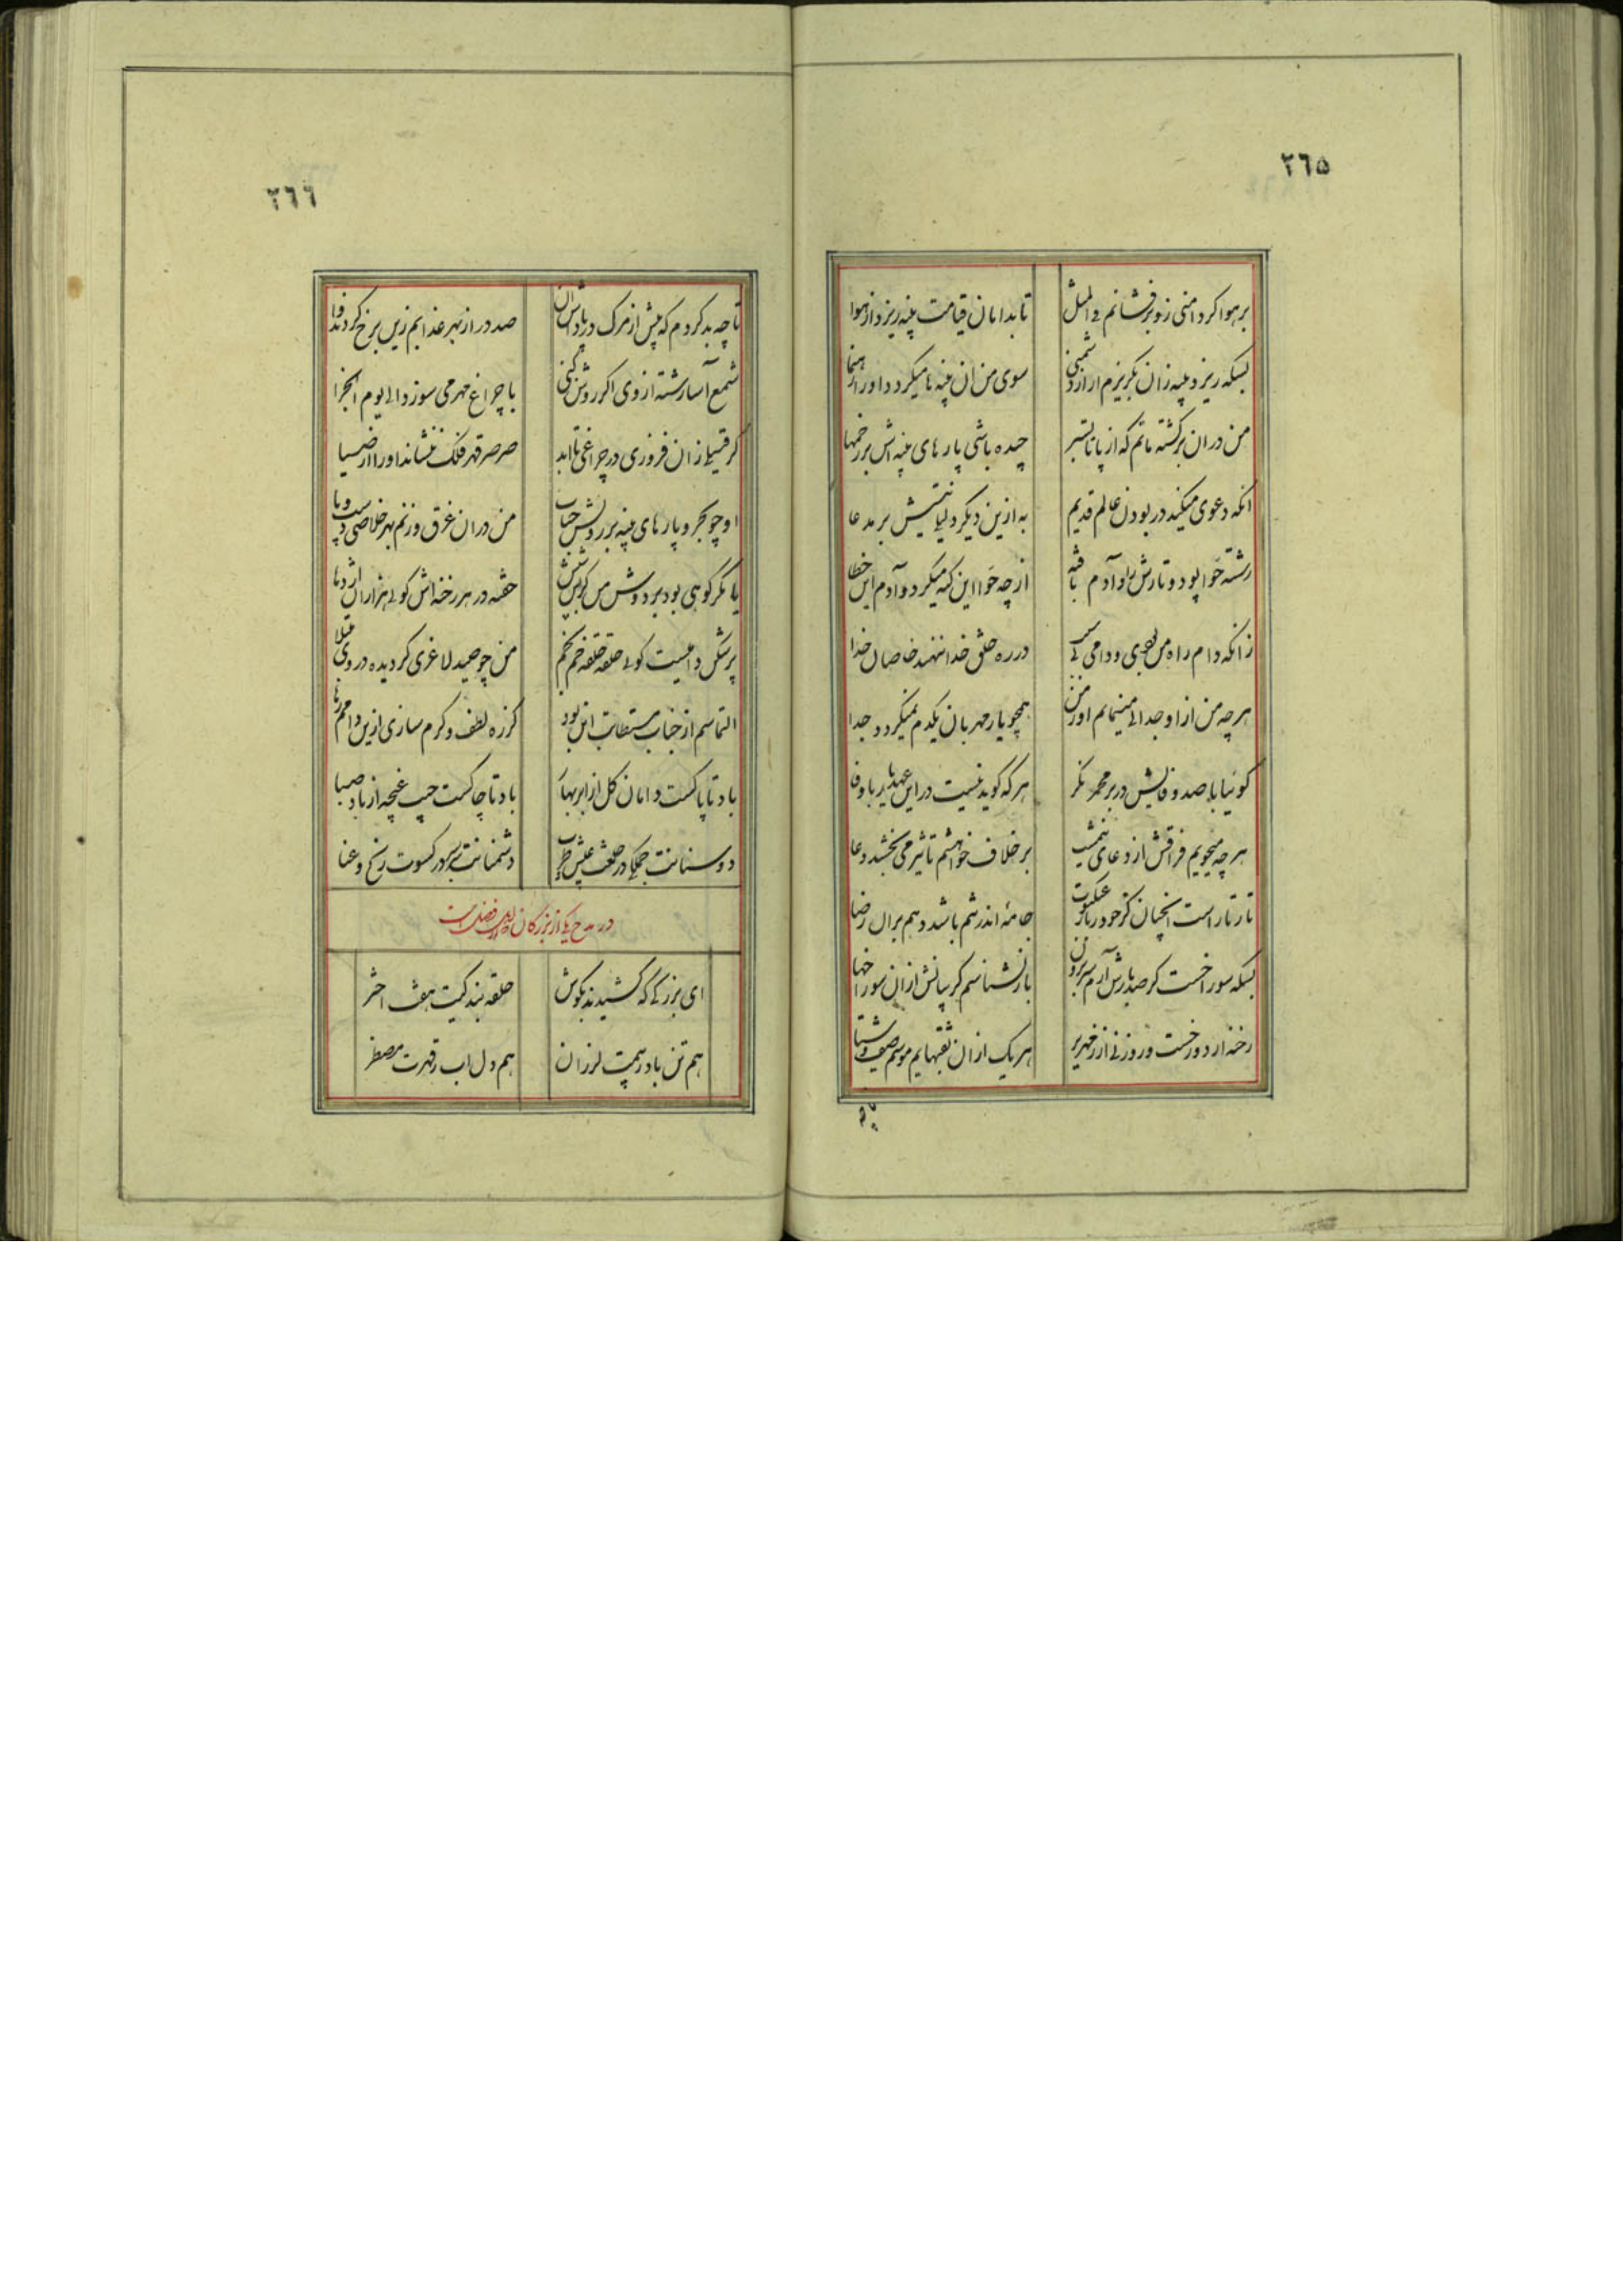 ٢٦٥
بر هوا کر دامنی زو برفشانم فی المثل
تا بدامان قیامت پنبه ریزد از هوا
بسکه ریزد پنبه زان بکریزم ار از دشمنی
سوی من ان پنبه ها میکردد او را رهنما
من در ان سرکشته ماتم که از پا تا بسر
چیده باشی پار های پنبه اش بر زخمها
انکه دعوی میکند در بودن عالم قدیم
به ازین دیکر دلیلی نیستش بر مدعا
رشته حوا پود و تارش را و آدم بافته
از چه حوا این کنه میکرد و آدم این خطا
زانکه دام راه من بودی و دامی کی
در ره خلق خدا ننهند خاصان خدا
هر چه من از او جدائی مینمایم او ز من
همچو یار مهربان یکدم نمیکردد جدا
کو بیا با صد وفایش در بر محمر نکر
هر که کوید نیست در این عهد یار باوفا
هر چه میجویم فراقش از دعای نیمشب
بر خلاف خواهشم تاثیر می بخشد دعا
تار تار است انچنان کز خود ز تار عنکبوت
جامهٔ اندر شم باشد دهم بران رضا
بسکه سوراخست کر صد بارش آرم سر برون
باز نشناسم کریبانش ازان سوراخها
رخنه ار دوزخست و روزنی از زمهریر
هر یک از ان ثقبهایم موسم صیف و شتا
تا چه
٢٦٦
تا چه بد کردم که پیش از مرک در پاداش ان
صد در از بهر عذابم زین برخ کردند وا
شمع آسا رشته از وی اکر روشن کنی
با چراغ مهر می سوزد الی یوم الجزا
کر فتیلی زان فروزی در چراغی تا ابد
صرصر قهر فلک ننشاند او را از ضیا
او چو بحر و پار های پنبه بر رویش حباب
من در ان غرق و زنم بهر خلاصی دست و پا
یا مکر کوهی بود بر دوش من کز بس تنش
خفته در هر رخنه اش کوئی هزاران اژدها
پر شکن دامیست کوئی حلقه حلقه خم بخم
من چو صید لاغری کردیده در وی مبتلا
التماسم از جناب مستطابت این بود
کز ره لطف و کرم سازی ازین دامم رها
باد تا پاکست دامان کل از ابر بهار
باد تا چاکست جیب غنچه از باد صبا
دوستانت جملکی در خلعت عیش و طرب
دشمنانت سربسر در کسوت رنج و عنا
در مدح یکی از بزرکان
ای بزرکی که کشیدند بکوش
حلقه بندکیت هفت اختر
هم تن باد ز بیمت لرزان
هم دل اب ز قهرت مضطر